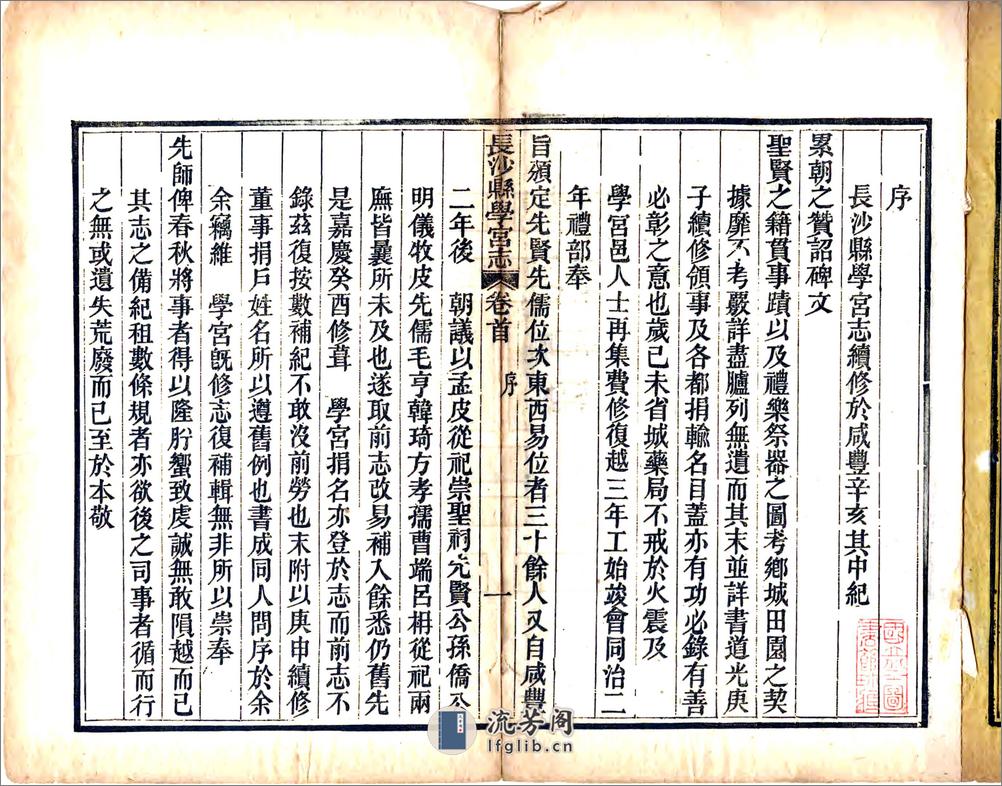 序
長沙縣學宮志續修於咸豐辛亥其中紀
累朝之贊詔碑文
聖賢之籍貫事蹟以及禮樂祭器之圖考鄉城田園之契
據靡不考嚴詳盡臚列無遺而其末並詳書道光庚
子續修領事及各都捐輸名目蓋亦有功必錄有善
必彰之意也歲己未省城藥局不戒於火震及
學宮邑人士再集費修復越三年工始竣會同治二
年禮部奉
旨頒定先賢先儒位次東西易位者三十餘人又自咸豐
長沙縣學宮志 卷首 序 一
二年後 朝議以孟皮從祀崇聖祠先賢公孫僑公
明儀牧皮先儒毛亨韓琦方孝孺曹端呂柟從祀兩
廡皆曩所未及也遂取前志改易補入餘悉仍舊先
是嘉慶癸酉修葺 學宮捐名亦登於志而前志不
錄茲復按數補紀不敢沒前勞也末附以庚申續修
董事捐戶姓名所以遵舊例也書成同人問序於余
余竊維 學宮既修志復補輯無非所以崇奉
先師俾春秋將事者得以隆肸蠁致虔誠無敢隕越而已
其志之備紀租數條規者亦欲後之司事者循而行
之無或遺失荒廢而已至於本敬
流芳阁
lfglib.cn